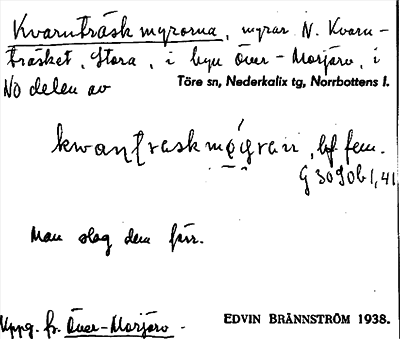 Kvarnträskmyrorna, myrar N. Kvarn-
träsket, Stora, i byn Över-Morjärv, i
NO delen av Töre sn, Nederkalix tg, Norrbottens l.
bf fem.
G 3090b1,41
Man slog dem förr.
Uppg. fr. Över-Morjärv.
EDVIN BRÄNNSTRÖM 1938.